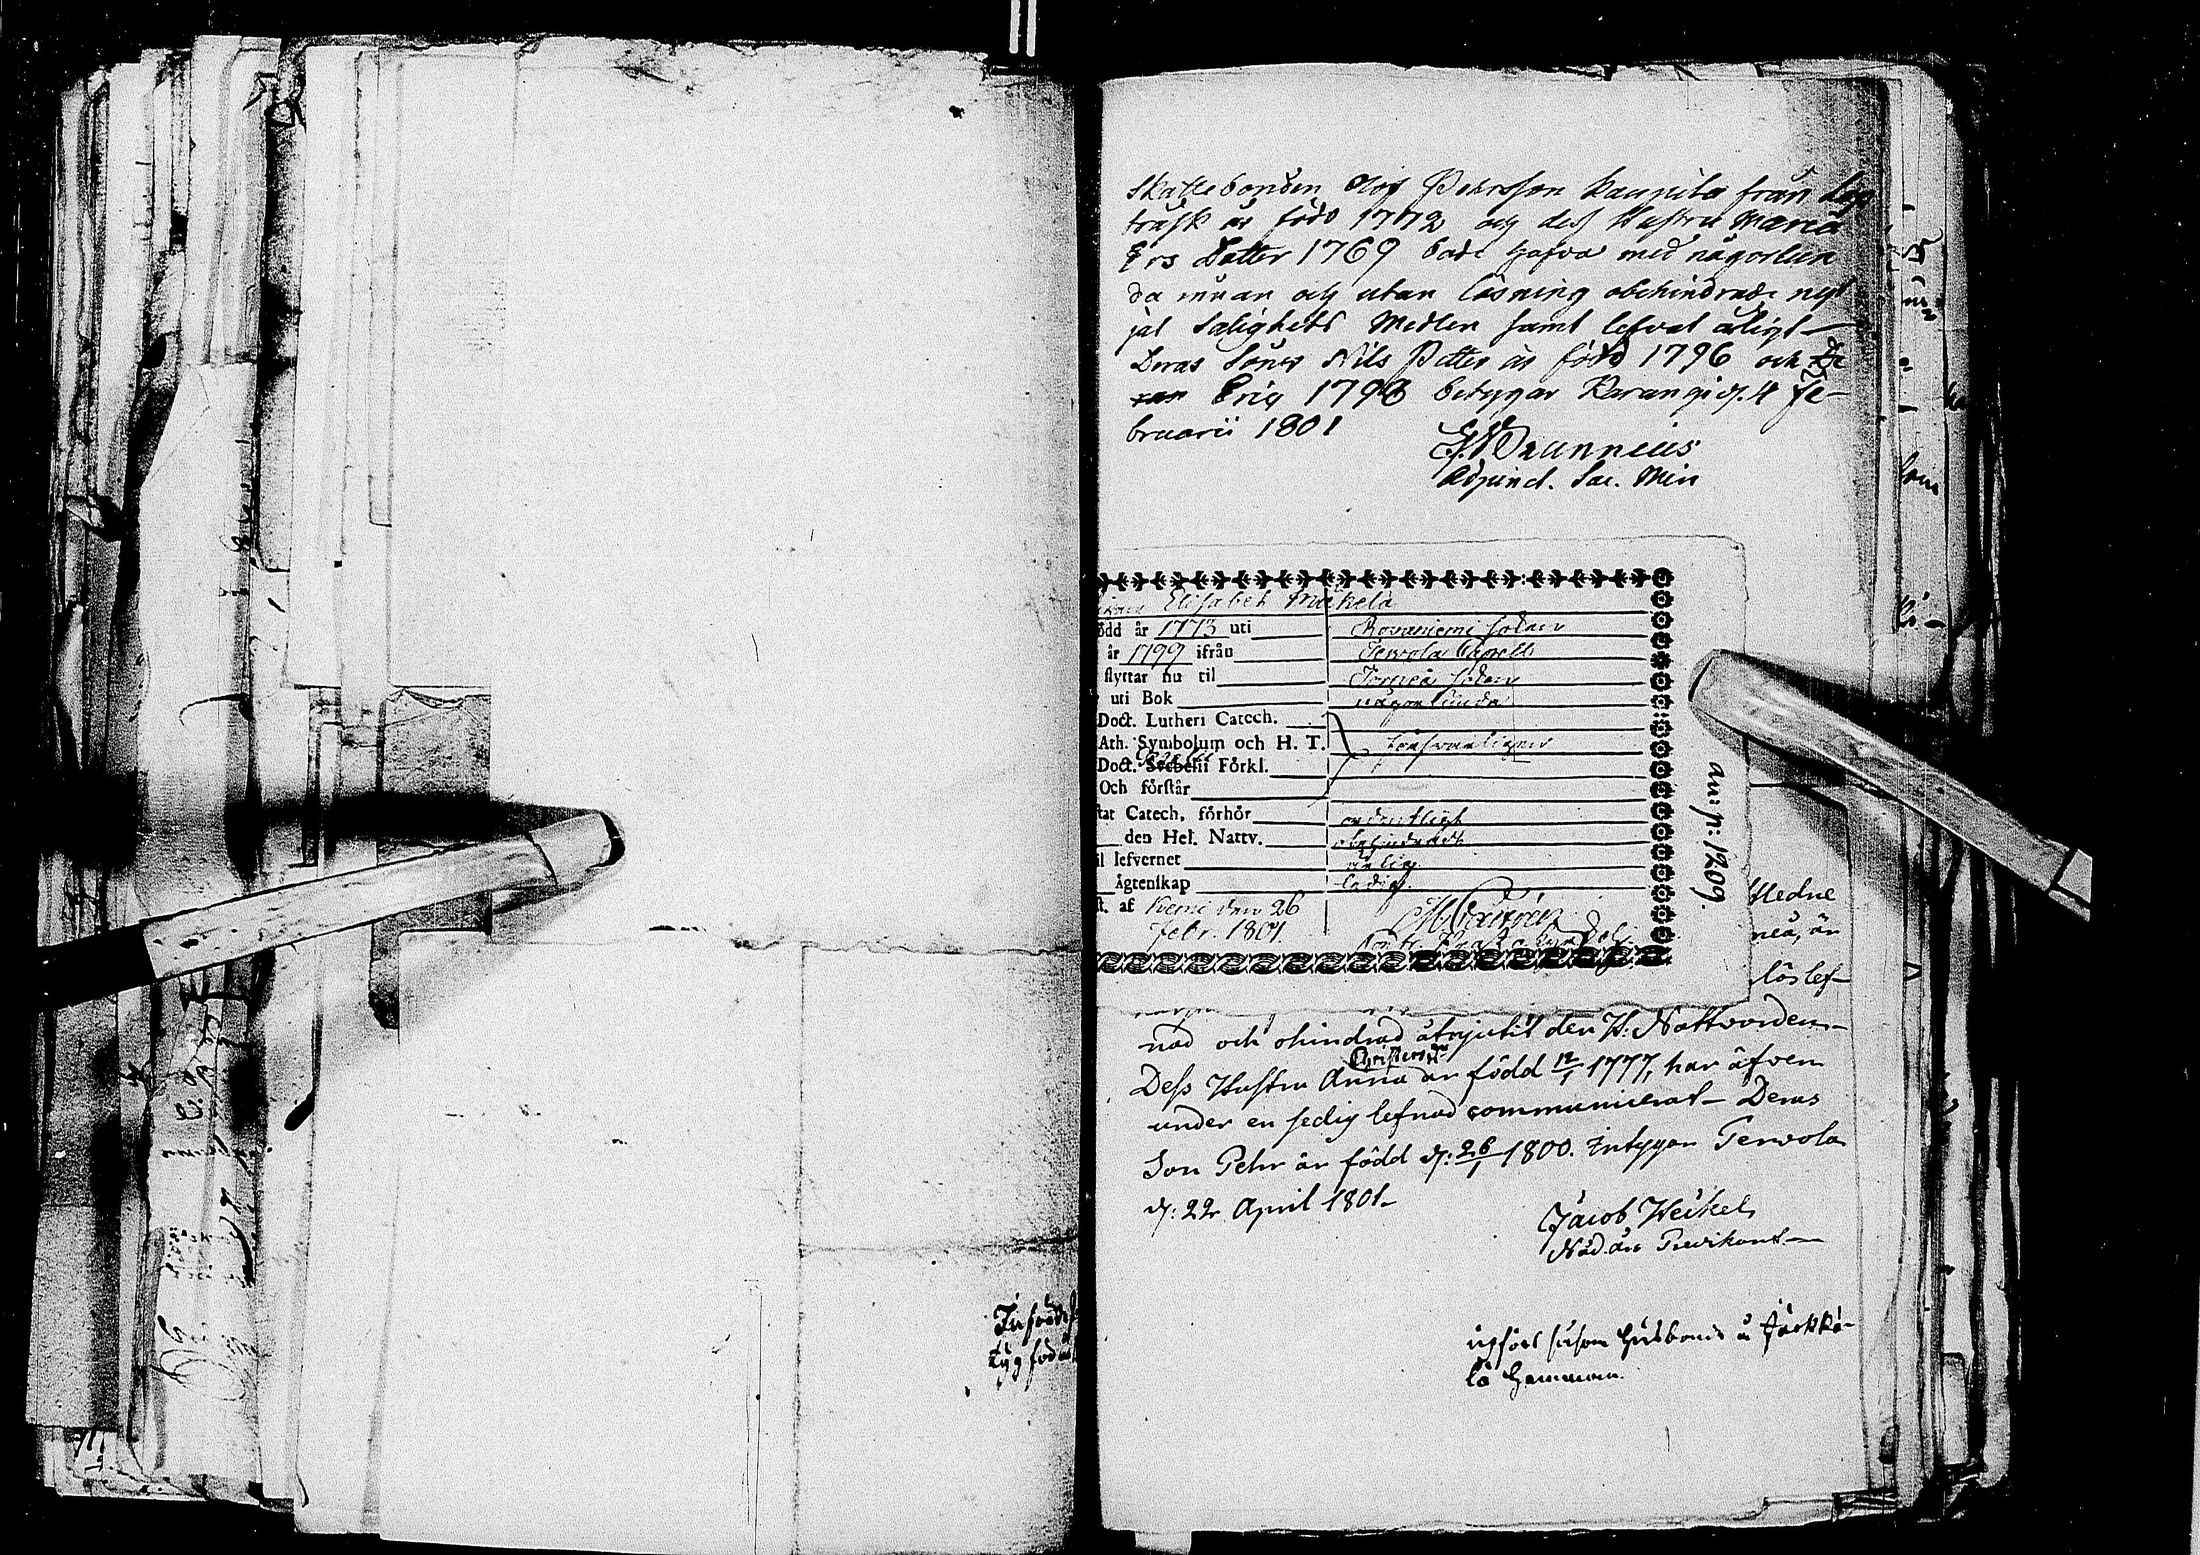 Skattebonden Olof Pehrsson Kaupila från Lap
träsk är född 1772 och dess Hustru Maria
Ers Dotter 1769 både hafva med någorlun
da innan och utan läsning obehindrade nyt
jat Salighets Medlen samt lefvat ärligt
Deras Söner Nils Petter är född 1796 och
Eric 1798 betygar Karungi d. 4 Fe-
bruarii 1801
Brunnius
Adjunct. Sac. Min
Elisabet Mickela
ödd år 1773 uti Rovaniemi Sokn
år 1799 ifrån Tervola Capell
flyttar nu til Torneå Sokn
uti Bok någorlunda
Doct. Lutheri Catech.
Ath. Symbolum och H. T. försvarligen
Doct. Svebelii Förkl.
Och förstår
tat Catech. förhör ordentligt
den Hel. Nattv. obehindradt
il lefvernet ärlig
Ägtenskap ledig
t. af Kemi den 26
Febr. 1801.
an: p: 1209.
Medne
neå, är
löslef-
nad och ohindrad åtnjutit den H. Nattvarden
Christersdr
Dess Hustru Anna är född 12/1 1777, har äfven
under en sedig lefnad communicerat – Deras
Son Pehr är född d: 26/1 1800. Intygar Tervola
d: 22 April 1801 –
Jacob Heickel
Nåd. års Predikant
införd såsom Husbonde å Jäckkö-
lä Hemman.